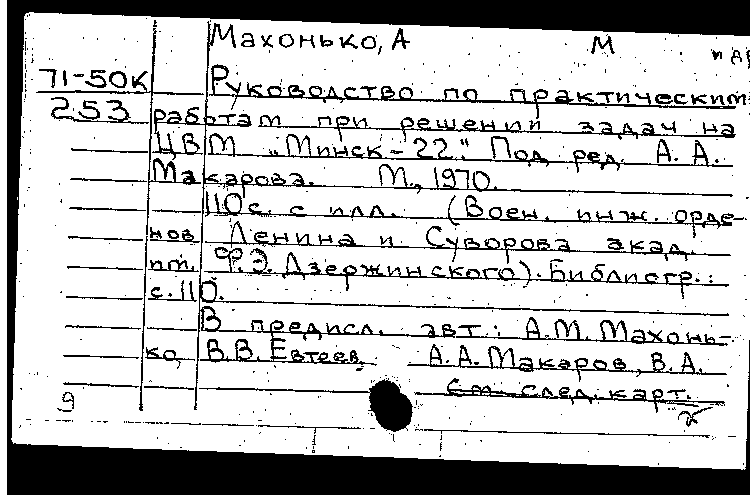 Махонько, А М
71-50к Руководство по практическим
253 работам при решении задач на
ЦВМ „Минск-22". Под ред. А. А.
Макарова. М., 1970.
110 с. с илл. (Воен. инж. орде-
нов Ленина и Суворова акад.
им. Ф.Э. Дзержинского). Библиогр.:
с. 110.
В предисл. авт.: А.М. Махонь-
ко, В.В. Евтеев, А.А. Макаров, В.А.
См. след. карт.
9